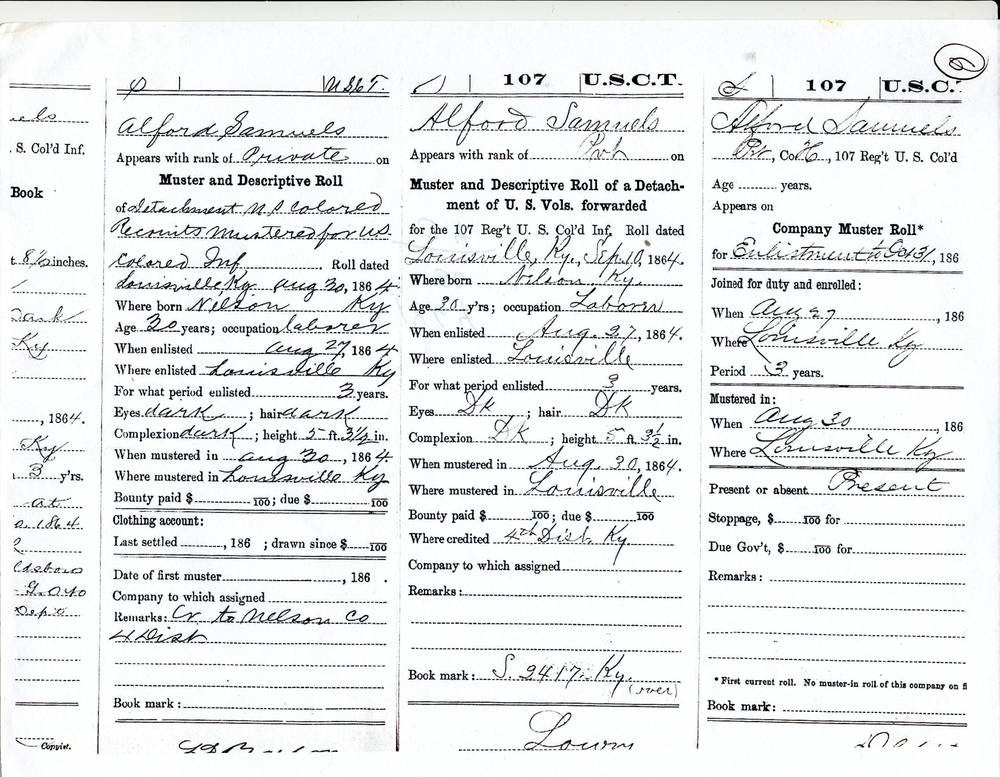 els
. S. Col'd Inf.
Book
t. 8½ inches.
Dark
Ky
, 1864.
Ky
3 y'rs.
at
1864
Copyist.
U.S.C.T.
Alford Samuels
Appears with rank of Private on
Muster and Descriptive Roll
of Detachment No. 8 Colored
Recruits Mustered for U.S.
Colored Inf. Roll dated
Louisville Ky Aug 30, 1864
Where born Nelson Ky
Age 30 years; occupation laborer
When enlisted Aug 27, 1864
Where enlisted Louisville Ky
For what period enlisted 3 years.
Eyes dark; hair dark
Complexion dark; height 5 ft. 3½ in.
When mustered in Aug 30, 1864
Where mustered in Louisville Ky
Bounty paid $ 100; due $ 100
Clothing account:
Last settled , 186 ; drawn since $ 100
Date of first muster , 186 .
Company to which assigned
Remarks: Cr to Nelson Co
4 Dist
Book mark:
107 U.S.C.T.
Alford Samuels
Appears with rank of Pvt on
Muster and Descriptive Roll of a Detach-
ment of U. S. Vols. forwarded
for the 107 Reg't U. S. Col'd Inf. Roll dated
Louisville, Ky., Sept. 10, 1864.
Where born Nelson Ky.
Age 30 y'rs; occupation Laborer
When enlisted Aug. 27, 1864.
Where enlisted Louisville
For what period enlisted 3 years.
Eyes Dk; hair Dk
Complexion Dk; height 5 ft. 3½ in.
When mustered in Aug. 30, 1864.
Where mustered in Louisville
Bounty paid $ 100; due $ 100
Where credited 4th Dist. Ky.
Company to which assigned
Remarks:
Book mark: S. 2417. Ky.
(over)
107 U.S.C.
Alford Samuels
Pvt, Co. H, 107 Reg't U. S. Col'd
Age years.
Appears on
Company Muster Roll*
for Enlistment to Oct 31, 186
Joined for duty and enrolled:
When Aug 27, 186
Where Louisville Ky
Period 3 years.
Mustered in:
When Aug 30, 186
Where Louisville Ky
Present or absent Present
Stoppage, $ 100 for
Due Gov't, $ 100 for
Remarks:
* First current roll. No muster-in roll of this company on fi
Book mark: